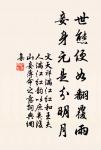 世態便如翻覆雨
妾身元是分明月
文天祥滿江紅和王夫
人滿江紅韻以庶幾後
山妾薄命之意詞典網
集